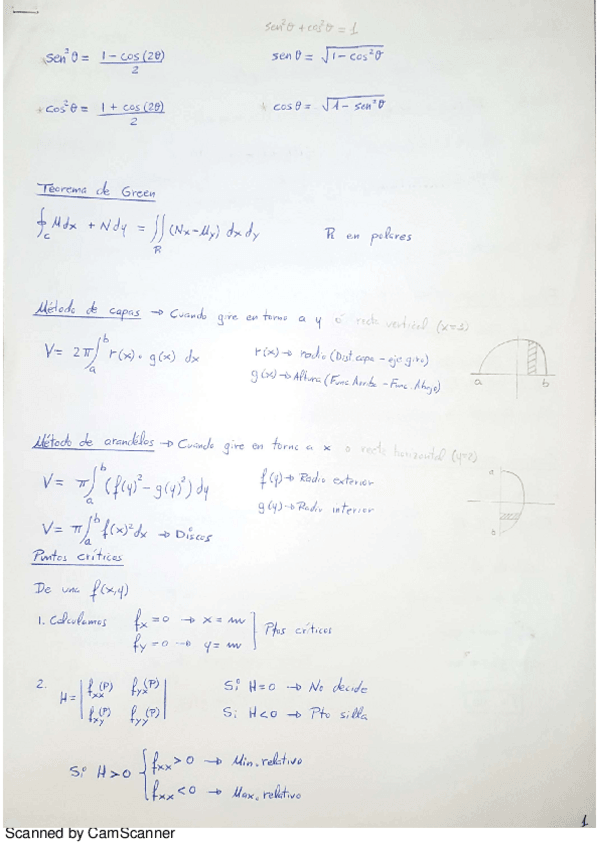 sen²θ + cos²θ = 1
sen²θ = (1 - cos(2θ))/2    senθ = √(1 - cos²θ)
* cos²θ = (1 + cos(2θ))/2    * cosθ = √(1 - sen²θ)
Teorema de Green
∮_C Mdx + Ndy = ∬_R (Nx - My) dx dy    R en polares
Método de capas → Cuando gire en torno a y o recta vertical (x=3)
V = 2π ∫_a^b r(x) · g(x) dx    r(x) → radio (Dist capa - eje giro)
g(x) → Altura (Func Arriba - Func. Abajo)
a b
Método de arandelas → Cuando gire en torno a x o recta horizontal
a
V = π ∫_a^b (f(y)² - g(y)²) dy    f(y) → Radio exterior
g(y) → Radio interior
b
V = π ∫_a^b f(x)² dx → Discos
Puntos críticos
De una f(x,y)
1. Calculamos    fx = 0 → x =    Ptos críticos
fy = 0 → y =
2. H = | fxx(P) fyx(P) |    Si H=0 → No decide
| fxy(P) fyy(P) |    Si H<0 → Pto silla
Si H>0 { fxx > 0 → Min. relativo
fxx < 0 → Max. relativo
1
Scanned by CamScanner